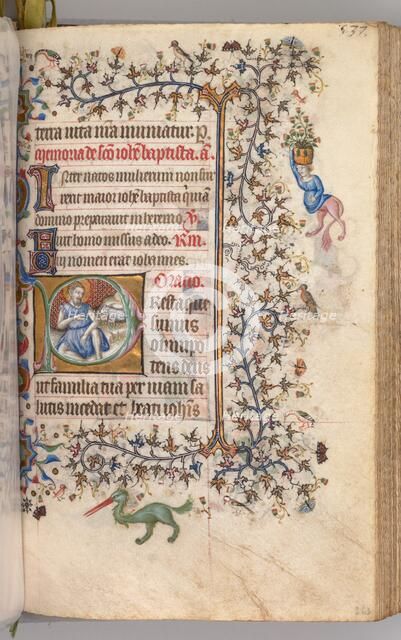 537.
terra uita nra muniatur. P
Memoria de sco iohe baptista. a.
Inter natos mulierum non sur
rexit maior iohe baptista qui uiam
domino preparauit in heremo. V
Fuit homo missus a deo. Rm.
Cui nomen erat iohannes.
Oratio.
Presta que
sumus
omnipo
tens deus
ut familia tua per uiam sa
lutis incedat et beati iohis
Heritage